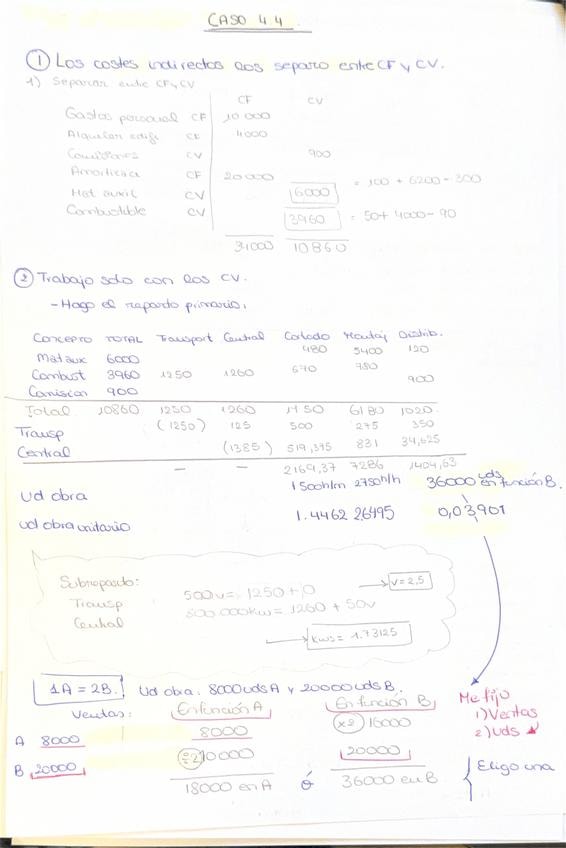 CASO 4 4
① Los costes indirectos los separo entre CF y CV.
1) Separar entre CF y CV
CF CV
Gastos personal CF 10 000
Alquiler edif. CF 4000
Comisiones CV 900
Amortizac CF 20000
Mat auxil CV 6000 = 100 + 6200 - 300
Combustible CV 3960 = 50 + 4000 - 90
34000 10860
② Trabajo solo con los CV.
- Hago el reparto primario.
Concepto TOTAL Transport Central Cortado Montaj Distrib.
Mat aux 6000 480 5400 120
Combust 3960 1250 1260 670 780
Comision 900 900
Total 10860 1250 1260 1150 6180 1020
Transp (1250) 125 500 275 350
Central (1385) 519,375 831 34,625
- - 2169,37 7286 1404,63
Ud obra 1500h/m 2750h/h 36000 uds en función B.
ud obra unitario 1.4462 2.6495 0,03901
Subreparto:
Transp 500v = 1250 + 0 → v = 2,5
Central 800.000kw = 1260 + 50v
→ kws = 1.73125
1A = 2B. Ud obra: 8000 uds A y 20000 uds B.
Ventas: En función A En función B
A 8000 8000 (x2) 16000
B 20000 (÷2) 10000 20000
18000 en A ó 36000 en B
Me fijo
1) Ventas
2) Uds
Eligo una